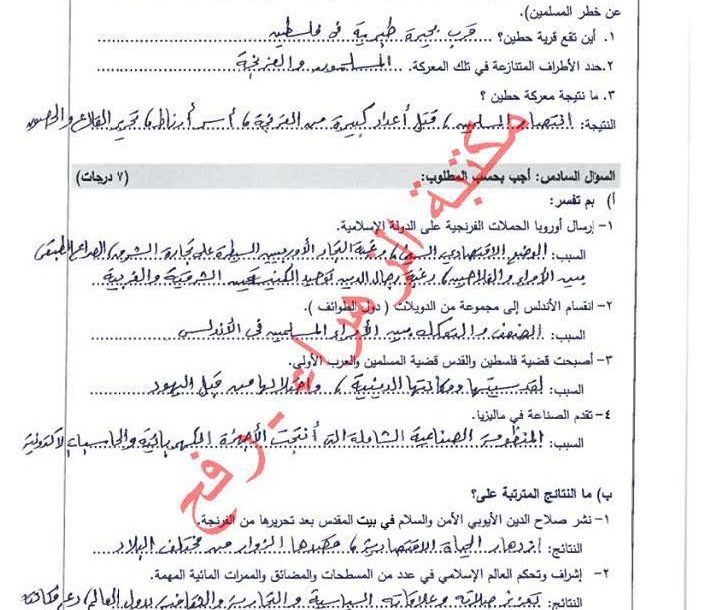 عن خطر المسلمين).
١. أين تقع قرية حطين؟ قرب بحيرة طبرية في فلسطين
٢.حدد الأطراف المتنازعة في تلك المعركة. المسلمون والفرنجة
٣. ما نتيجة معركة حطين ؟
النتيجة: انتصار المسلمين، قتل أعداد كبيرة من الفرنجة، أسر أرناط، تحرير القلاع والحصون
السؤال السادس: أجب بحسب المطلوب: (٧ درجات)
أ) بم تفسر:
١- إرسال أوروبا الحملات الفرنجية على الدولة الإسلامية.
السبب: الوضع الاقتصادي السيئ، رغبة التجار الأوربيين السيطرة على تجارة الشرق، الصراع الطبقي
بين الأمراء والفلاحين، رغبة رجال الدين توحيد الكنيستين الشرقية والغربية
٢- انقسام الأندلس إلى مجموعة من الدويلات ( دول الطوائف ).
السبب: الضعف والتفكك بين الأمراء المسلمين في الأندلس
٣- أصبحت قضية فلسطين والقدس قضية المسلمين والعرب الأولى.
السبب: لقدسيتها ومكانتها الدينية، واحتلالها من قبل اليهود
٤- تقدم الصناعة في ماليزيا.
السبب: المنظومة الصناعية الشاملة التي أنتجت الأجهزة الكهربائية والحاسبات الالكترونية
ب) ما النتائج المترتبة على؟
١- نشر صلاح الدين الأيوبي الأمن والسلام في بيت المقدس بعد تحريرها من الفرنجة.
النتائج: ازدهار الحياة الاقتصادية، قصدها الزوار من مختلف البلاد
٢- إشراف وتحكم العالم الإسلامي في عدد من المسطحات والمضائق والممرات المائية المهمة.
النتائج: تعزيز صلاته وعلاقاته السياسية والتجارية والثقافية بدول العالم، دعم مكانته
مكتبة الزهراء - رفح